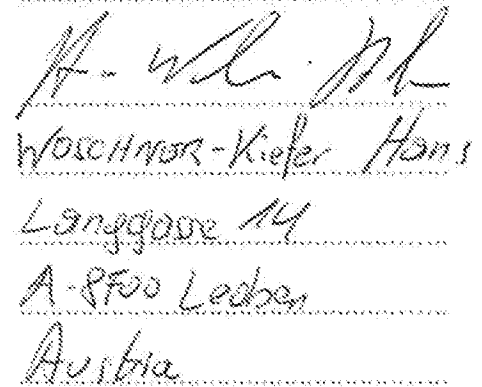 Woschner-Kiefer Hans
Langgasse 14
A-8700 Leoben
Austria